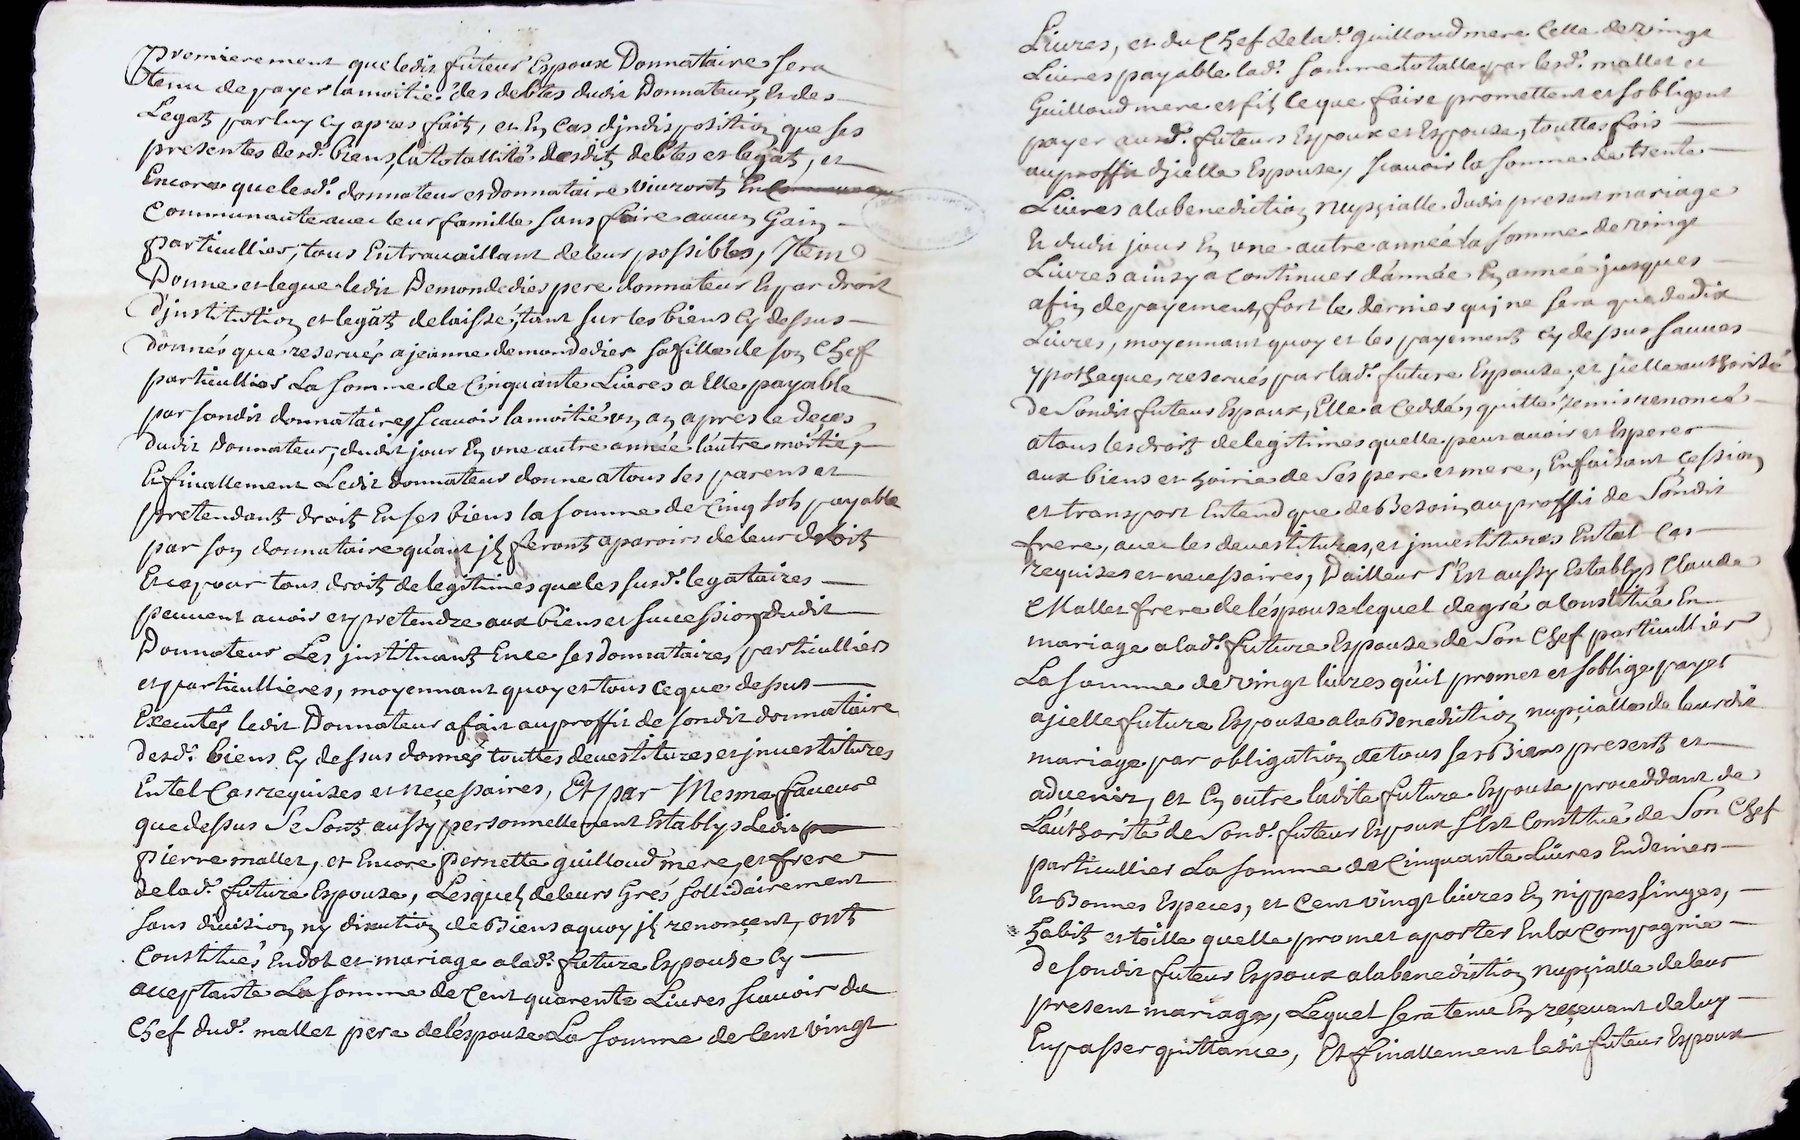 Premierement que ledit futeur Espoux Donnataire sera
tenu de payer la moitié des debtes dudit Donnateur, Et des
Legatz par luy cy apres faitz, et En Cas d'jndisposition que ses
presentes desd. biens, la totallité desditz debtes et legatz, et
Encore que lesd. donnateur et donnataire viuront En
Communauté auec leur famille sans faire aucun Gain
particullier, tous En trauaillant de leur possibles, Item
Donne et legue ledit Demondedies pere donnateur Et par droit
d'jnstitution et legatz delaissé, tant sur les biens Cy dessus
donnés que reserués a jeanne demondedies sa fille de son Chef
particullier La somme de Cinquante Liures a Elle payable
par sondit donnataire, scauoir la moitié un an apres le deçes
dudit Donnateur, dudit jour En une autre année l'autre moitié,
Et finallement Ledit donnateur donne a tous ses parens et
pretendantz droitz En ses biens la somme de Cinq sols payable
par son donnataire quant jlz ferontz aparoir de leur droitz
Et ce pour tous droitz de legitimes que les susd. legataires
peuuent auoir et pretendre aux biens et succession dudit
Donnateur Les jnstituantz En ce ses donnataires particulliers
et particullieres, moyennant quoy et tous ce que dessus
Executés ledit Donnateur a fait au proffit de sondit donnataire
desd. biens Cy dessus donnés touttes deuestitures et jnuestitures
En tel Cas requises et neçessaires, Et par Mesme faueur
que dessus Se Sontz aussy personnellement Establys Ledit
pierre mallet, et Encore pernette guilloud mere, et frere
de lad. future Espouse, Lesquelz de leurs Grés sollidairement
sans diuision ny discution de Biens a quoy jlz renonçent, ontz
Constitués En dot et mariage a lad. future Espouse Cy
acceptante La somme de Cent quarente Liures scauoir du
Chef dud. mallet pere de l'éspouse La somme de Cent vingt
Liures, et du Chef de lad. guilloud mere Celle de vingt
Liures payable lad. somme totalle par lesd. mallet et
Guilloud mere et filz Ce que faire promettent et s'obligent
payer ausd. futeurs Espoux et Espouse, touttes fois
au proffit d'jcelle Espouse, scauoir la somme de trente
Liures a la benediction nupçialle dudit present mariage
Et dudit jour En une autre année la somme de vingt
Liures ainsy a Continuer d'année En année jusques
a fin de payement, fort le dernier quj ne sera que de dix
Liures, moyennant quoy et les payementz Cy dessus sauues
ypotheques reserués par lad. future Espouse, et jcelle authorisé
de Sondit futeur Espoux, Elle a Ceddé, quitté, remis renoncé
a tous les droitz de legitimes quelle peut auoir et Esperer
aux biens et hoirie de Ses pere et mere, En faisant Cession
et transport Entend que de Besoin, au proffit de Sondit
frere, auec les deuestitures, et jnuestitures En tel Cas
requises et necessaires, D'ailleur s'Est aussy Establys Claude
Mallet frere de l'éspouse lequel de gré a Constitué En
mariage a lad. future Espouse de Son Chef particullier
La somme de vingt liures qu'il promet et s'oblige payer
a jcelle future Espouse a la Benediction nupçialle de leurdit
mariage par obligation de tous ses Biens presentz et
aduenir, et En outre ladite future Espouse proceddant de
L'authorité de Sond. futeur Espoux s'Est Constitué de Son Chef
particullier La somme de Cinquante Liures En deniers
Et Bonnes Especes, et Cent vingt liures En nippes, linges,
habitz et toille quelle promet aporter En la Compagnie
de sondit futeur Espoux a la benediction nupçialle de leur
present mariage, Lequel sera tenu En reçeuant de luy
En passer quittance, Et finallement ledit futeur Espoux